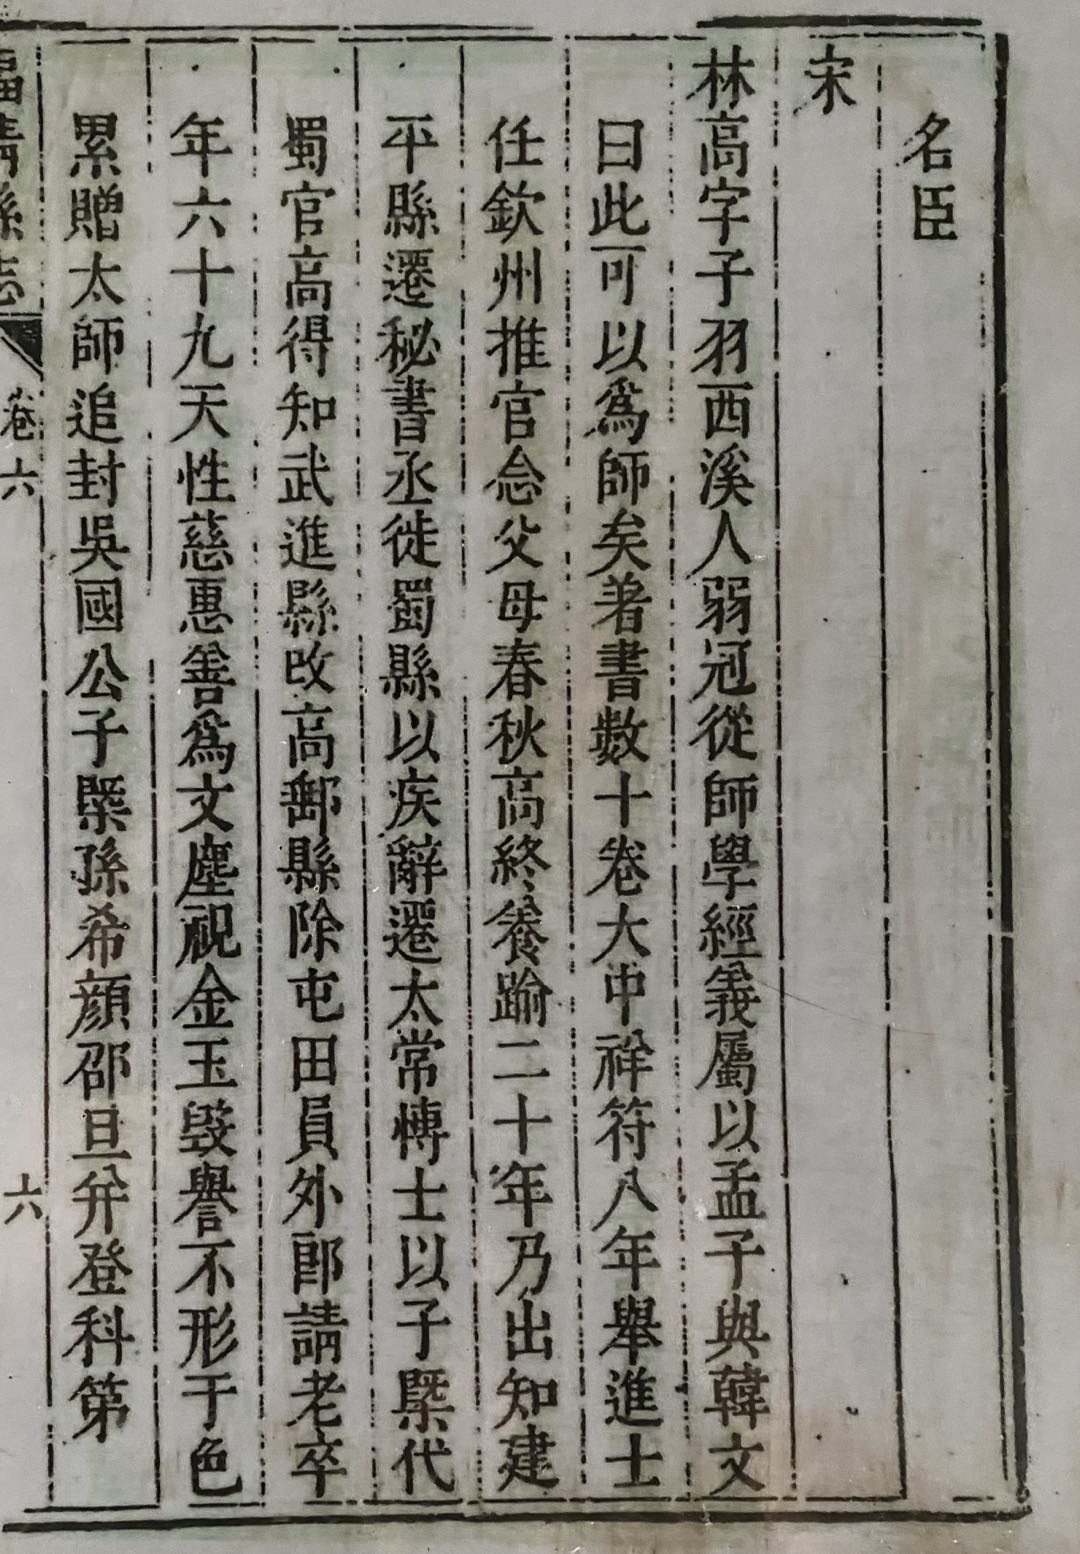 名臣
宋
林高字子羽西溪人弱冠從師學經義屬以孟子與韓文
曰此可以為師矣著書數十卷大中祥符八年舉進士
任欽州推官念父母春秋高終養踰二十年乃出知建
平縣遷秘書丞徙蜀縣以疾辭遷太常博士以子槩代
蜀官高得知武進縣改高郵縣除屯田員外郎請老卒
年六十九天性慈惠善為文塵視金玉毀譽不形于色
累贈太師追封吳國公子槩孫希顏邵旦并登科第
福清縣志 卷六 六